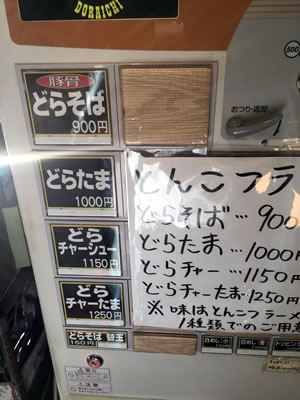 DORAICHI
500
おつり・返却
豚骨
どらそば
900円
どらたま
1000円
どら
チャーシュー
1150円
どら
チャーたま
1250円
どらそば 替玉
150円
とんこつラ
どらそば…900
どらたま…1000円
どらチャー…1150
どらチャーたま…1250
※味はとんこつラーメ
1種類でのご用意
白めし
白めし
トッピング
注意